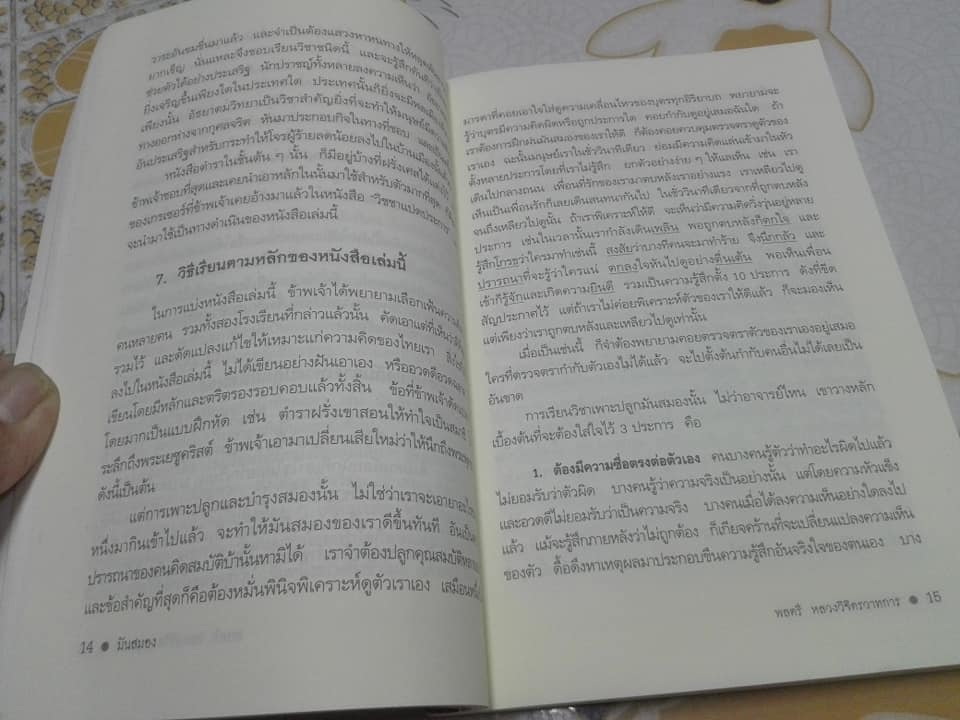 วาระอันขมขื่นมาแล้ว และจำเป็นต้องแสวงหาหนทางให้หลุด
ยากเข็ญ นั่นแหละจึงชอบเรียนวิชาชนิดนี้ และจะรู้สึกตัน
ช่วยตัวได้อย่างประเสริฐ นักปราชญ์ทั้งหลายลงความเห็นว่า
ยิ่งเจริญขึ้นเพียงใดในประเทศใด ประเทศนั้นก็ยิ่งจะมี
เพียงนั้น อัธยาตมวิทยาเป็นวิชาสำคัญยิ่งที่จะทำให้มนุษย์
ทางออกห่างจากทุคลจริต หันมาประกอบกิจในทางที่ชอบ และเป็น
อันประเสริฐสำหรับกระทำให้โจรผู้ร้ายลดน้อยลงไปในบ้านเมือง
หนังสือตำราในชั้นต้น ๆ นั้น ก็มีอยู่บ้างที่ฝรั่งเศสได้
ข้าพเจ้าชอบที่สุดและเคยนำเอาหลักในนั้นมาใช้สำหรับตัวมากที่สุด
ของเกรเซอร์ที่ข้าพเจ้าเคยอ้างมาแล้วในหนังสือ "วิชชาแปดประการ"
จะนำมาใช้เป็นทางดำเนินของหนังสือเล่มนี้
7. วิธีเรียนตามหลักของหนังสือเล่มนี้
ในการแบ่งหนังสือเล่มนี้ ข้าพเจ้าได้พยายามเลือกเฟ้นความ
คนหลายคน รวมทั้งสองโรงเรียนที่กล่าวแล้วนั้น คัดเอาแต่ที่เห็นว่า
รวมไว้ และดัดแปลงแก้ไขให้เหมาะแก่ความคิดของไทยเรา
ลงไปในหนังสือเล่มนี้ ไม่ได้เขียนอย่างฝันเอาเอง หรืออวดดีอวด
เขียนโดยมีหลักและตริตรองรอบคอบแล้วทั้งสิ้น ข้อที่ข้าพเจ้า
โดยมากเป็นแบบฝึกหัด เช่น ตำราฝรั่งเขาสอนให้ทำใจเป็นสมาธิ
ระลึกถึงพระเยซูคริสต์ ข้าพเจ้าเอามาเปลี่ยนเสียใหม่ว่าให้นึกถึง
ดังนี้เป็นต้น
แต่การเพาะปลูกและบำรุงสมองนั้น ไม่ใช่ว่าเราจะเอายา
หนึ่งมากินเข้าไปแล้ว จะทำให้มันสมองของเราดีขึ้นทันที อันเป็น
ปรารถนาของคนคิดสมบัติบ้านั้นหามิได้ เราจำต้องปลูกคุณสมบัติ
และข้อสำคัญที่สุดก็คือต้องหมั่นพินิจพิเคราะห์ดูตัวเราเอง เสมือนหนึ่ง
14 ● มันสมอง
มารดาที่คอยเอาใจใส่ดูความเคลื่อนไหวของบุตรทุกอิริยาบถ พยายามจะ
รู้ว่าบุตรมีความคิดผิดหรือถูกประการใด คอยกำกับดูอยู่เสมอฉันใด ถ้า
เราต้องการฝึกฝนมันสมองของเราให้ดี ก็ต้องคอยควบคุมตรวจตราดูตัวของ
เราเอง ฉะนั้นมนุษย์เราในชั่ววินาทีเดียว ย่อมมีความคิดแล่นเข้ามาในหัว
ตั้งหลายประการโดยที่เราไม่รู้สึก ยกตัวอย่างง่าย ๆ ให้แลเห็น เช่น เรา
เดินไปกลางถนน เพื่อนที่รักของเรามาตบหลังเราอย่างแรง เราเหลียวไปดู
เห็นเป็นเพื่อนรักก็เลยเดินสนทนากันไป ในชั่ววินาทีเดียวจากที่ถูกตบหลัง
จนถึงเหลียวไปดูนั้น ถ้าเราพิเคราะห์ให้ดี จะเห็นว่ามีความคิดวิ่งวุ่นอยู่หลาย
ประการ เช่นในเวลานั้นเรากำลังเดินเพลิน พอถูกตบหลังก็ตกใจ และ
รู้สึกโกรธว่าใครมาทำเช่นนี้ สงสัยว่าบางทีตนจะมาทำร้าย จึงนึกกลัว และ
ปรารถนาที่จะรู้ว่าใครแน่ ตกลงใจหันไปดูอย่างตื่นเต้น พอเห็นเพื่อน
เข้าก็รู้จักและเกิดความยินดี รวมเป็นความรู้สึกตั้ง 10 ประการ ดังที่ขีด
สัญประกาศไว้ แต่ถ้าเราไม่ค่อยพิเคราะห์ตัวของเราให้ดีแล้ว ก็จะมองเห็น
แต่เพียงว่าเราถูกตบหลังและเหลียวไปดูเท่านั้น
เมื่อเป็นเช่นนี้ ก็จำต้องพยายามคอยตรวจตราตัวของเราเองอยู่เสมอ
ใครที่ตรวจตรากำกับตัวเองไม่ได้แล้ว จะไปตั้งต้นกำกับคนอื่นไม่ได้เลยเป็น
อันขาด
การเรียนวิชาเพาะปลูกมันสมองนั้น ไม่ว่าอาจารย์ไหน เขาวางหลัก
เบื้องต้นที่จะต้องใส่ใจไว้ 3 ประการ คือ
1. ต้องมีความซื่อตรงต่อตัวเอง คนบางคนรู้ตัวว่าทำอะไรผิดไปแล้ว
ไม่ยอมรับว่าตัวผิด บางคนรู้ว่าความจริงเป็นอย่างนั้น แต่โดยความหัวแข็ง
และอวดดีไม่ยอมรับว่าเป็นความจริง บางคนเมื่อได้ลงความเห็นอย่างใดลงไป
แล้ว แม้จะรู้สึกภายหลังว่าไม่ถูกต้อง ก็เกียจคร้านที่จะเปลี่ยนแปลงความเห็น
ของตัว ดื้อดึงหาเหตุผลมาประกอบขืนความรู้สึกอันจริงใจของตนเอง บาง
พลตรี หลวงวิจิตรวาทการ ● 15